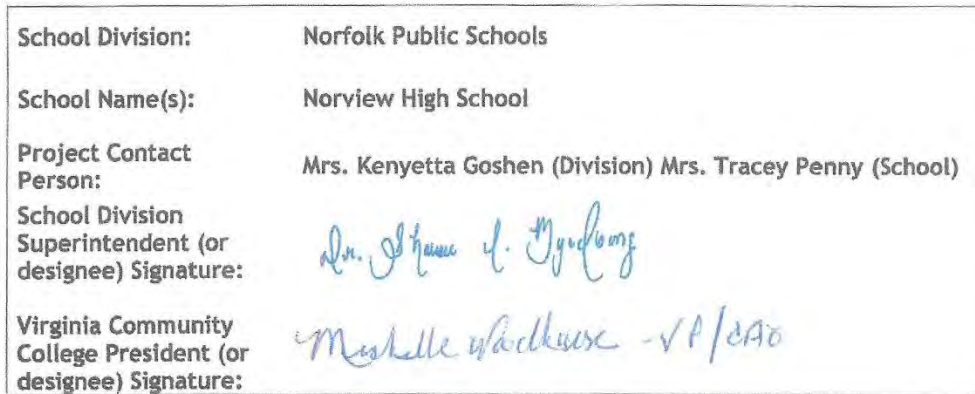 School Division: Norfolk Public Schools
School Name(s): Norview High School
Project Contact
Person: Mrs. Kenyetta Goshen (Division) Mrs. Tracey Penny (School)
School Division
Superintendent (or
designee) Signature: Dr.
Virginia Community
College President (or
designee) Signature: Michelle Woodhouse - VP/CAO